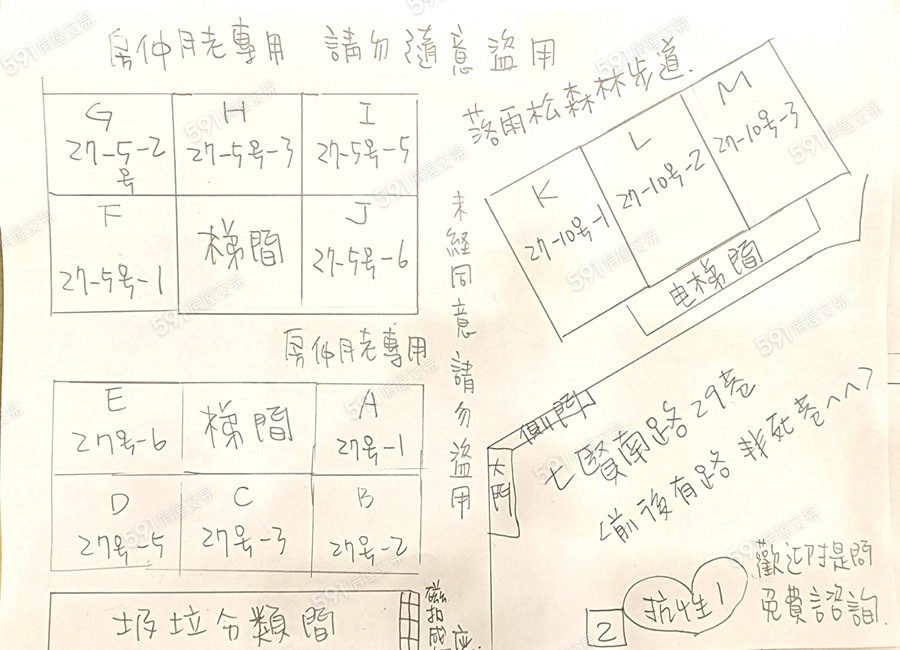 房仲月老專用 請勿隨意盜用
G
27-5-2
号
H
27-5号-3
I
27-5号-5
F
27-5号-1
梯間
J
27-5号-6
房仲月老專用
E
27号-6
梯間
A
27号-1
D
27号-5
C
27号-3
B
27号-2
垃圾分類間
未経同意請勿盜用
落雨松森林步道.
K
27-10号-1
L
27-10号-2
M
27-10号-3
电梯間
側門
大門
七賢南路29巷
前後有路
2
歡迎時提問
免費諮詢.
591房屋交易